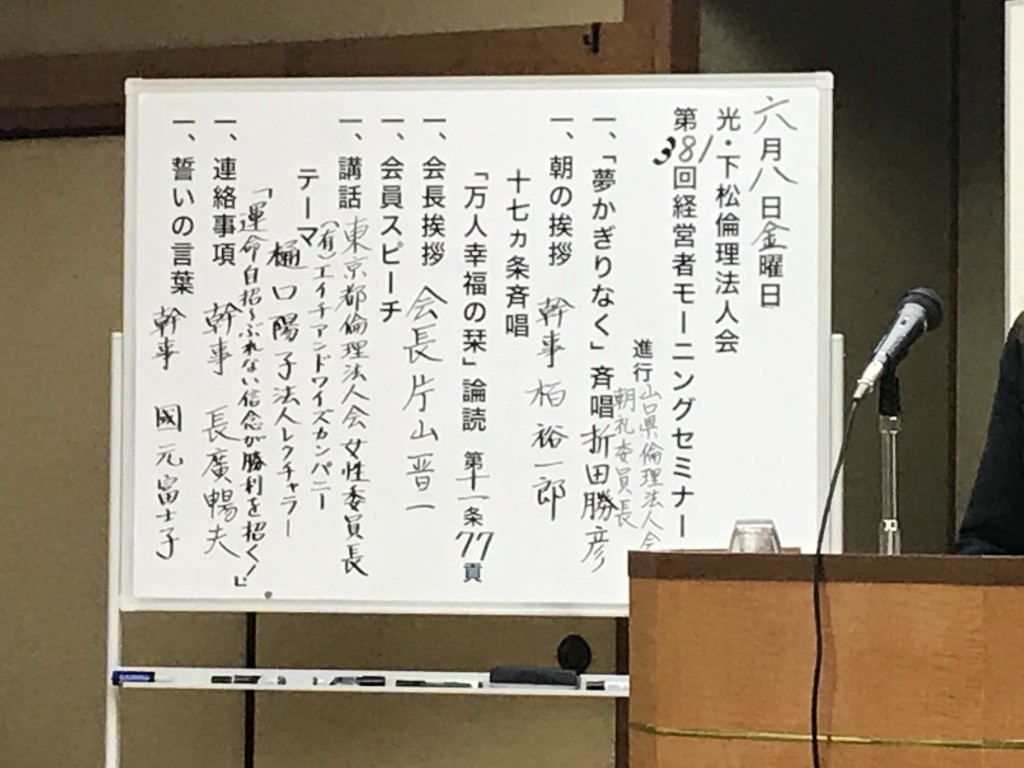 六月八日金曜日
光・下松倫理法人会
第381回経営者モーニングセミナー
進行 山口県倫理法人会
朝礼委員長
一、「夢かぎりなく」斉唱 折田勝彦
一、朝の挨拶 幹事 栢 裕一郎
十七ヵ条斉唱
「万人幸福の栞」論読 第十一条 77頁
一、会長挨拶 会長 片山晋一
一、会員スピーチ
一、講話 東京都倫理法人会女性委員長
(有)エイチアンドワイズカンパニー
テーマ 樋口陽子法人レクチャラー
「運命自招〜ぶれない信念が勝利を招く!」
一、連絡事項 幹事 長廣暢夫
一、誓いの言葉 幹事 國元富士子